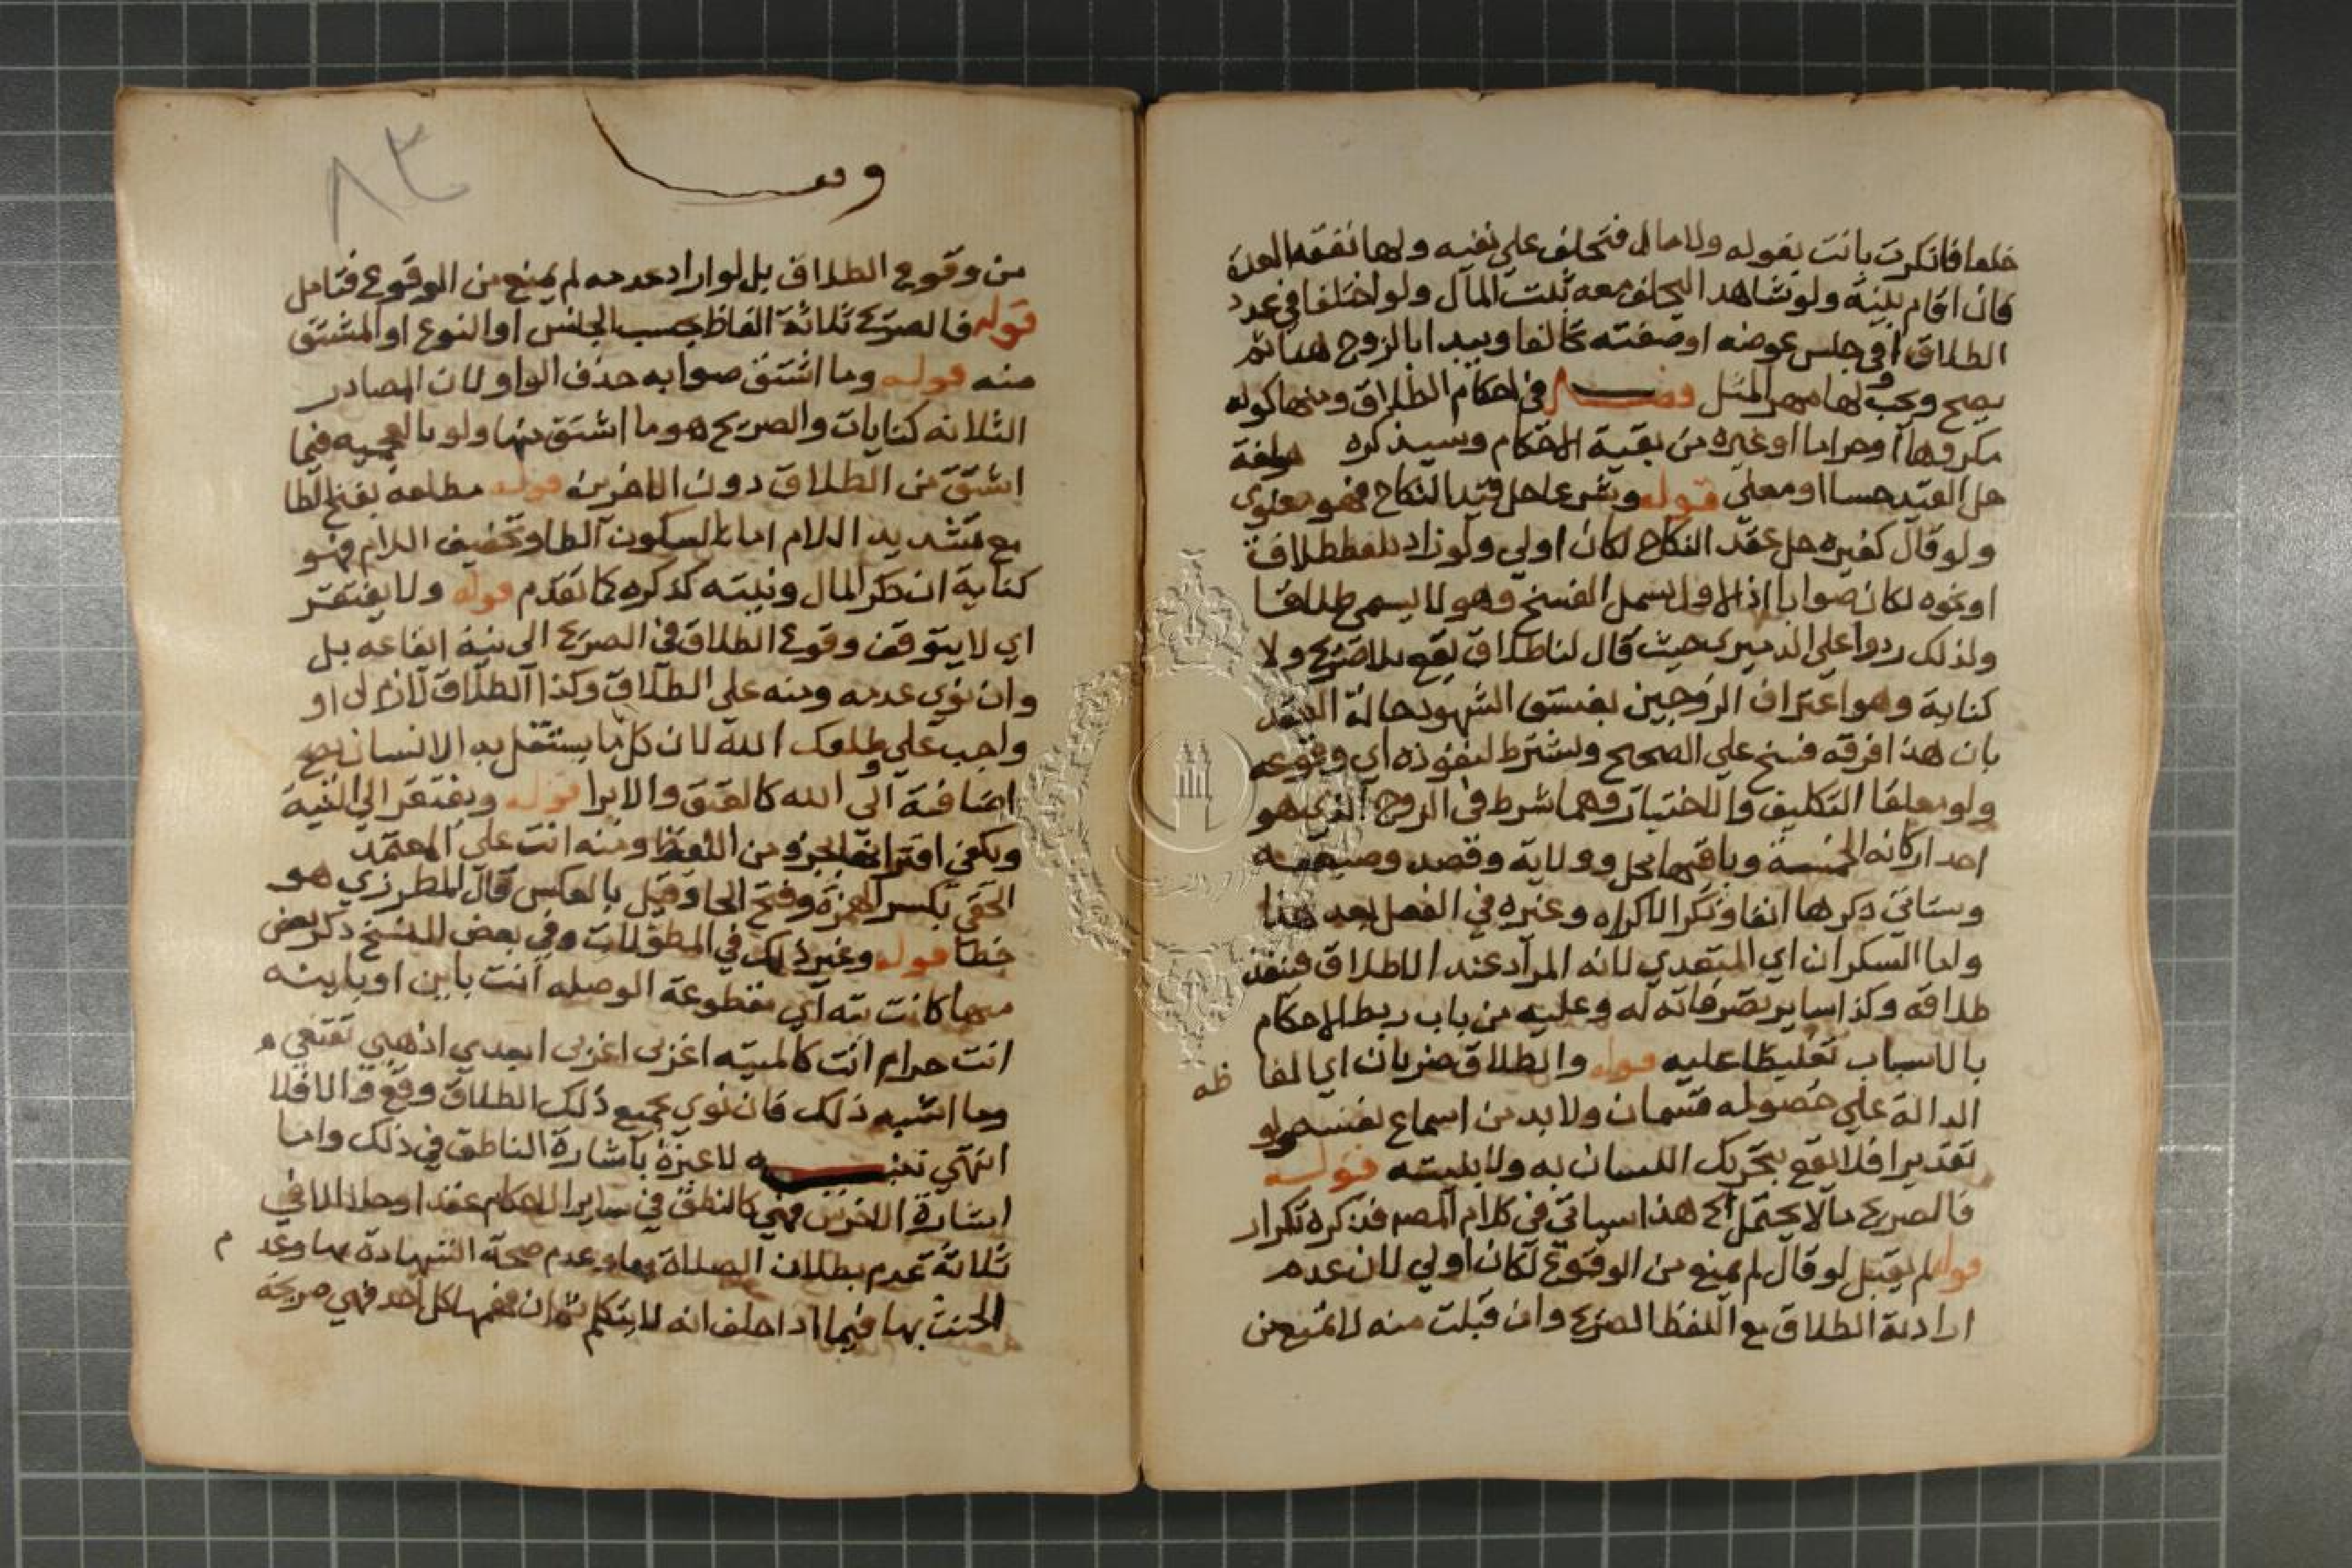 خلعا فانكرت بانت بقوله ولا مال فتحلف على نفيه ولها نفقة العدة
فان اقام بينة ولو شاهدا ليحلف معه ثبت المال ولو اختلفا في عدد
الطلاق او في جنس عوضه او صفته تحالفا ويبدا بالزوج هنا ثم
يصح ويجب لها مهر المثل فصل في احكام الطلاق ومنها كونه
مكروها او حراما او غيره من بقية الاحكام وسيذكره ولغة
حل القيد حسا او معنى قوله وشرعا حل قيد النكاح فهو معنوي
ولو قال كغيره حل عقد النكاح لكان اولى ولو زاد بلفظ طلاق
او نحوه لكان صوابا اذ الاول يشمل الفسخ وهو لا يسمى طلاقا
ولذلك ردوا على الدميري حيث قال لنا طلاق يقع بلا صريح ولا
كناية وهو اعتراف الزوجين بفسق الشهود حالة العقد
بان هذا فرقة فسخ على الصحيح ويشترط لنفوذه اي وقوعه
ولو معلقا التكليف والاختيار وهما شرط في الزوج الذي هو
احد اركانه الخمسة وباقيها محل وولاية وقصد وصيغة
وستاتي ذكرها انفا وذكر الاكراه وغيره في الفصل بعد هذا
واما السكران اي المتعدي لانه المراد عند الاطلاق فينفذ
طلاقه وكذا ساير تصرفاته له وعليه من باب ربط الاحكام
بالاسباب تغليظا عليه قوله والطلاق ضربان اي الفا
ظه
الدالة على حصوله قسمان ولا بد من اسماع نفسه ولو
تقديرا فلا يقع بتحريك اللسان به ولا بنيته قوله
فالصريح ما لا يحتمل الخ هذا سياتي في كلام المصم فذكره تكرار
قوله لم يقبل لو قال لم يمنع من الوقوع لكان اولى لان عدم
ارادية الطلاق مع اللفظ الصريح وان قبلت منه لا تمنع من
٨٣
من وقوع الطلاق بل لو اراد عدمه لم يمنع من الوقوع فتامل
قوله فالصريح ثلاثة الفاظ بحسب الجنس او النوع او المشتق
منه قوله وما اشتق صوابه حذف الواو لان المصادر
الثلاثه كنايات والصريح هو ما اشتق منها ولو بالعجميه فيما
اشتق من الطلاق دون الاخرين قوله مطلقة بفتح الطا
مع تشديد اللام اما بالسكون الطا وتخفيف اللام فهو
كناية ان ذكر المال ونيته كذكره كما تقدم قوله ولا يفتقر
اي لا يتوقف وقوع الطلاق في الصريح الى نية ايقاعه بل
وان نوى عدمه ومنه على الطلاق وكذا الطلاق لازم لي او
واجب علي طلقك الله لان كل ما يستقل به الانسان يصح
اضافته الى الله كالعتق والابرا قوله ويفتقر الى النية
ويكفي اقترانها بجزء من اللفظ ومنه انت على المعتمد
الحقي بكسر الهمزة وفتح الحا وقيل بالعكس قال المطرزي هو
خطا قوله وغير ذلك في المطولات وفي بعض النسخ ذكر بعض
منها كانت بته اي مقطوعة الوصله انت باين او باينه
انت حرام انت كالميته اغربي اعزبي ابعدي اذهبي تقنعي و
وما اشبه ذلك فان نوى بجميع ذلك الطلاق وقع والا فلا
انتهى تنبيه لا عبرة باشارة الناطق في ذلك واما
اشارة الاخرس فهي كالنطق في ساير الاحكام عقدا وحلا الا في
ثلاثة عدم بطلان الصلاة بها وعدم صحة الشهادة بها وعد م
الحنث بها فيما اذا حلف انه لا يتكلم ثم ان فهمها كل احد فهي صريحة